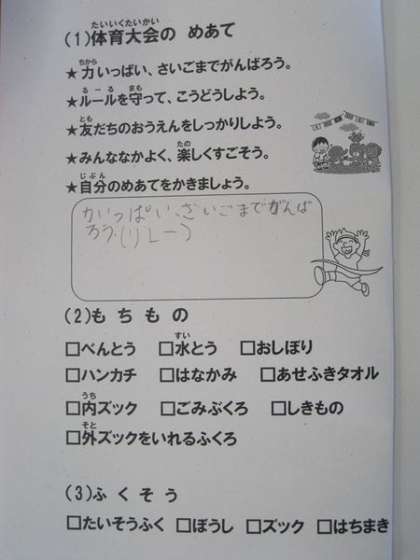 (1)体育大会の めあて
たいいくたいかい
★力いっぱい、さいごまでがんばろう。
ちから
★ルールを守って、こうどうしよう。
るーる まも
★友だちのおうえんをしっかりしよう。
とも
★みんななかよく、楽しくすごそう。
たの
★自分のめあてをかきましょう。
じぶん
力いっぱい、さいごまでがんば
ろう。(リレー)
(2)もちもの
□べんとう □水とう □おしぼり
すい
□ハンカチ □はなかみ □あせふきタオル
□内ズック □ごみぶくろ □しきもの
うち
□外ズックをいれるふくろ
そと
(3)ふくそう
□たいそうふく □ぼうし □ズック □はちまき